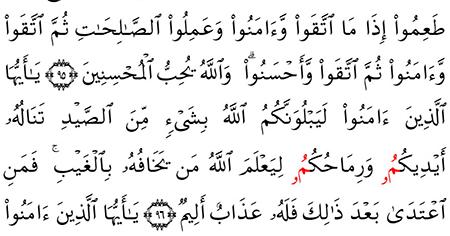 طَعِمُوٓا۟ إِذَا مَا ٱتَّقَوا۟ وَّءَامَنُوا۟ وَعَمِلُوا۟ ٱلصَّـٰلِحَـٰتِ ثُمَّ ٱتَّقَوا۟
وَّءَامَنُوا۟ ثُمَّ ٱتَّقَوا۟ وَّأَحْسَنُوا۟ ۗ وَٱللَّهُ يُحِبُّ ٱلْمُحْسِنِينَ ۝٩٥ يَـٰٓأَيُّهَا
ٱلَّذِينَ ءَامَنُوا۟ لَيَبْلُوَنَّكُمُ ٱللَّهُ بِشَىْءٍ مِّنَ ٱلصَّيْدِ تَنَالُهُۥٓ
أَيْدِيكُمُۥ وَرِمَاحُكُمُۥ لِيَعْلَمَ ٱللَّهُ مَن يَخَافُهُۥ بِٱلْغَيْبِ ۚ فَمَنِ
ٱعْتَدَىٰ بَعْدَ ذَٰلِكَ فَلَهُۥ عَذَابٌ أَلِيمٌ ۝٩٦ يَـٰٓأَيُّهَا ٱلَّذِينَ ءَامَنُوا۟